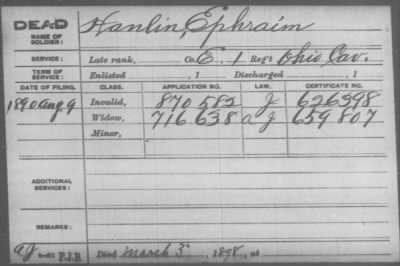 DEAD Hanlin, Ephraim
NAME OF SOLDIER:
SERVICE: Late rank, Co. E, 1 Reg't Ohio Cav.
TERM OF SERVICE: Enlisted , 1 Discharged , 1
DATE OF FILING. CLASS. APPLICATION NO. LAW. CERTIFICATE NO.
1890 Aug 9 Invalid, 870 582 J 626598
Widow, 716 638 a J 659 807
Minor,
ADDITIONAL SERVICES:
REMARKS:
P.I.B. Died March 3, 1898, at